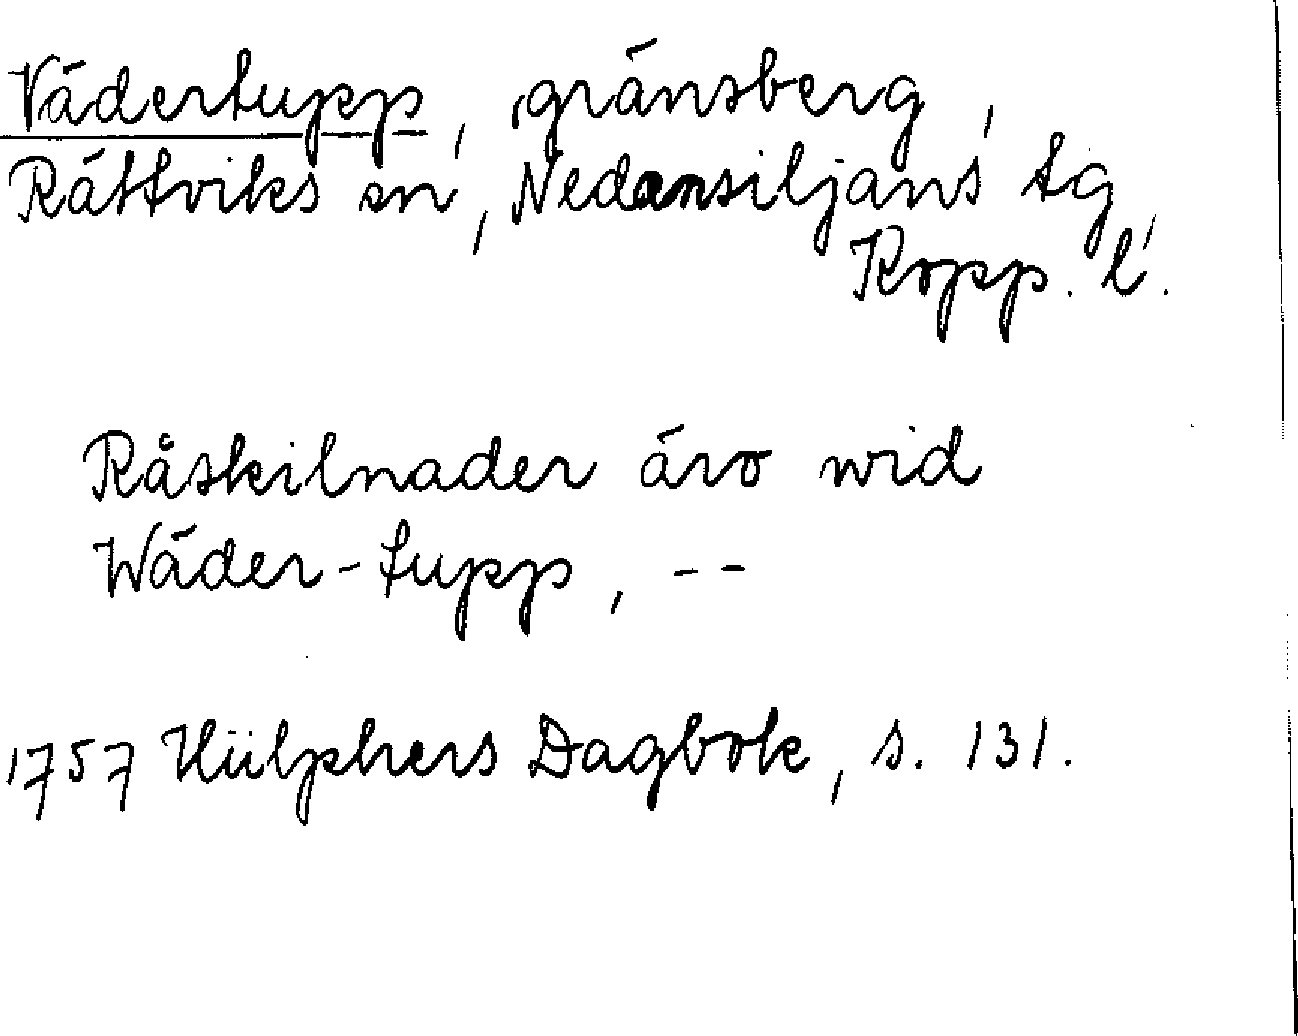 Vädertupp, gränsberg,
Rättviks sn, Nedansiljans tg,
Kopp. l.
Råskilnader äro wid
Wäder-tupp, --
1757 Hülphers Dagbok, s. 131.